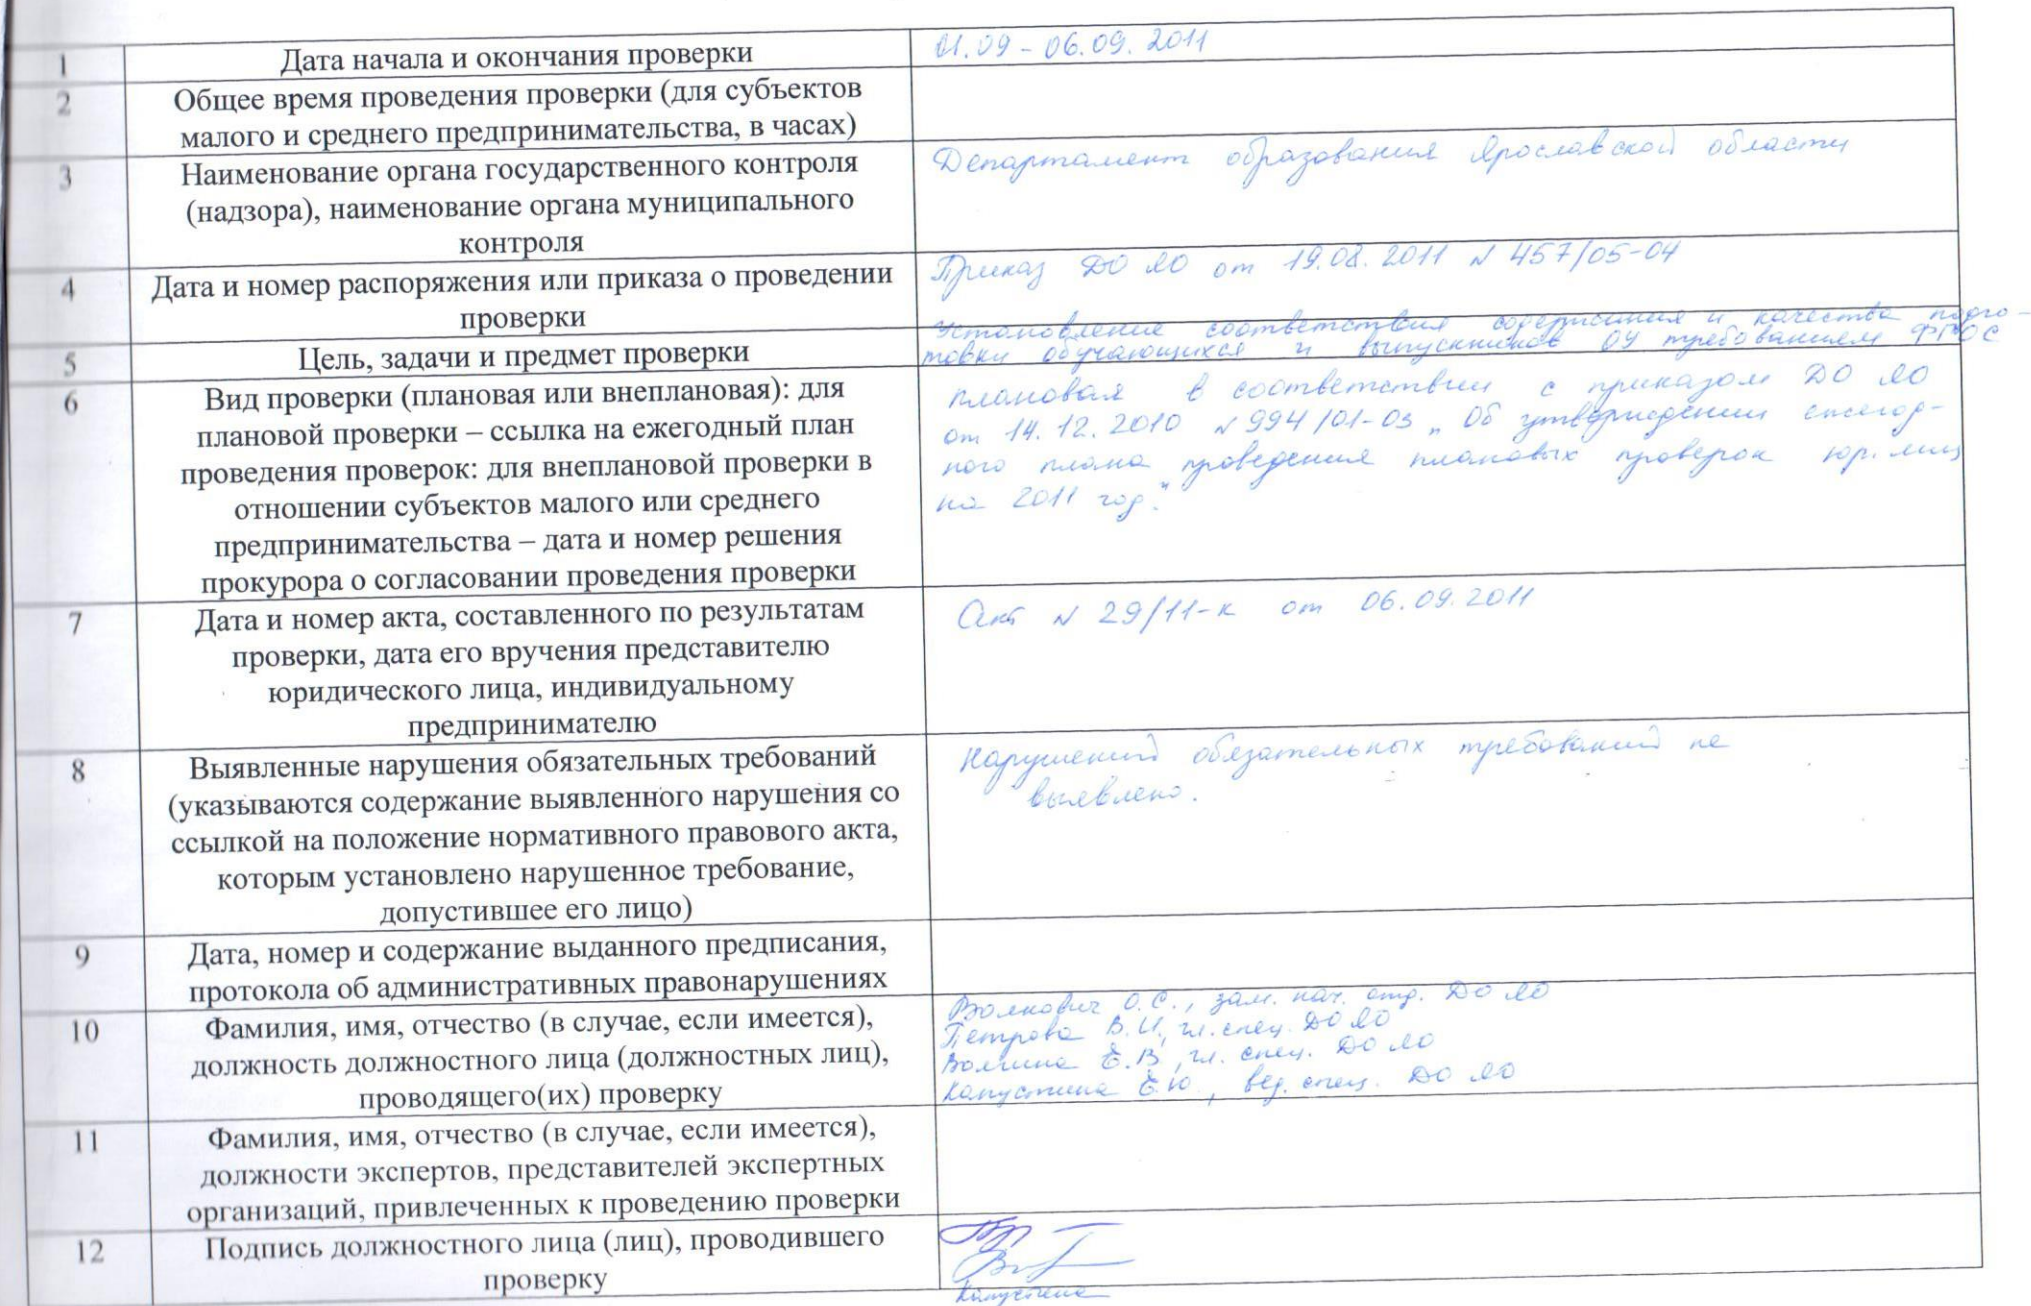 1 Дата начала и окончания проверки 01.09 - 06.09. 2011
2 Общее время проведения проверки (для субъектов
малого и среднего предпринимательства, в часах)
3 Наименование органа государственного контроля
(надзора), наименование органа муниципального
контроля
Департамент образования Ярославской области
4 Дата и номер распоряжения или приказа о проведении
проверки
Приказ ДО ЯО от 19.08.2011 № 457/05-04
5 Цель, задачи и предмет проверки
Установление соответствия содержания и качества подго-
товки обучающихся и выпускников ОУ требованиям ФГОС
6 Вид проверки (плановая или внеплановая): для
плановой проверки – ссылка на ежегодный план
проведения проверок: для внеплановой проверки в
отношении субъектов малого или среднего
предпринимательства – дата и номер решения
прокурора о согласовании проведения проверки
плановая в соответствии с приказом ДО ЯО
от 14.12.2010 № 994/01-03 „Об утверждении ежегод-
ного плана проведения плановых проверок юр. лиц
на 2011 год."
7 Дата и номер акта, составленного по результатам
проверки, дата его вручения представителю
юридического лица, индивидуальному
предпринимателю
Акт № 29/11-к от 06.09.2011
8 Выявленные нарушения обязательных требований
(указываются содержание выявленного нарушения со
ссылкой на положение нормативного правового акта,
которым установлено нарушенное требование,
допустившее его лицо)
Нарушений обязательных требований не
выявлено.
9 Дата, номер и содержание выданного предписания,
протокола об административных правонарушениях
10 Фамилия, имя, отчество (в случае, если имеется),
должность должностного лица (должностных лиц),
проводящего(их) проверку
Волкович О.С., зам. нач. отд. ДО ЯО
Петрова В.И., гл. спец. ДО ЯО
Волгина Е.В., гл. спец. ДО ЯО
Капустина Е.Ю., вед. спец. ДО ЯО
11 Фамилия, имя, отчество (в случае, если имеется),
должности экспертов, представителей экспертных
организаций, привлеченных к проведению проверки
12 Подпись должностного лица (лиц), проводившего
проверку
Капустина